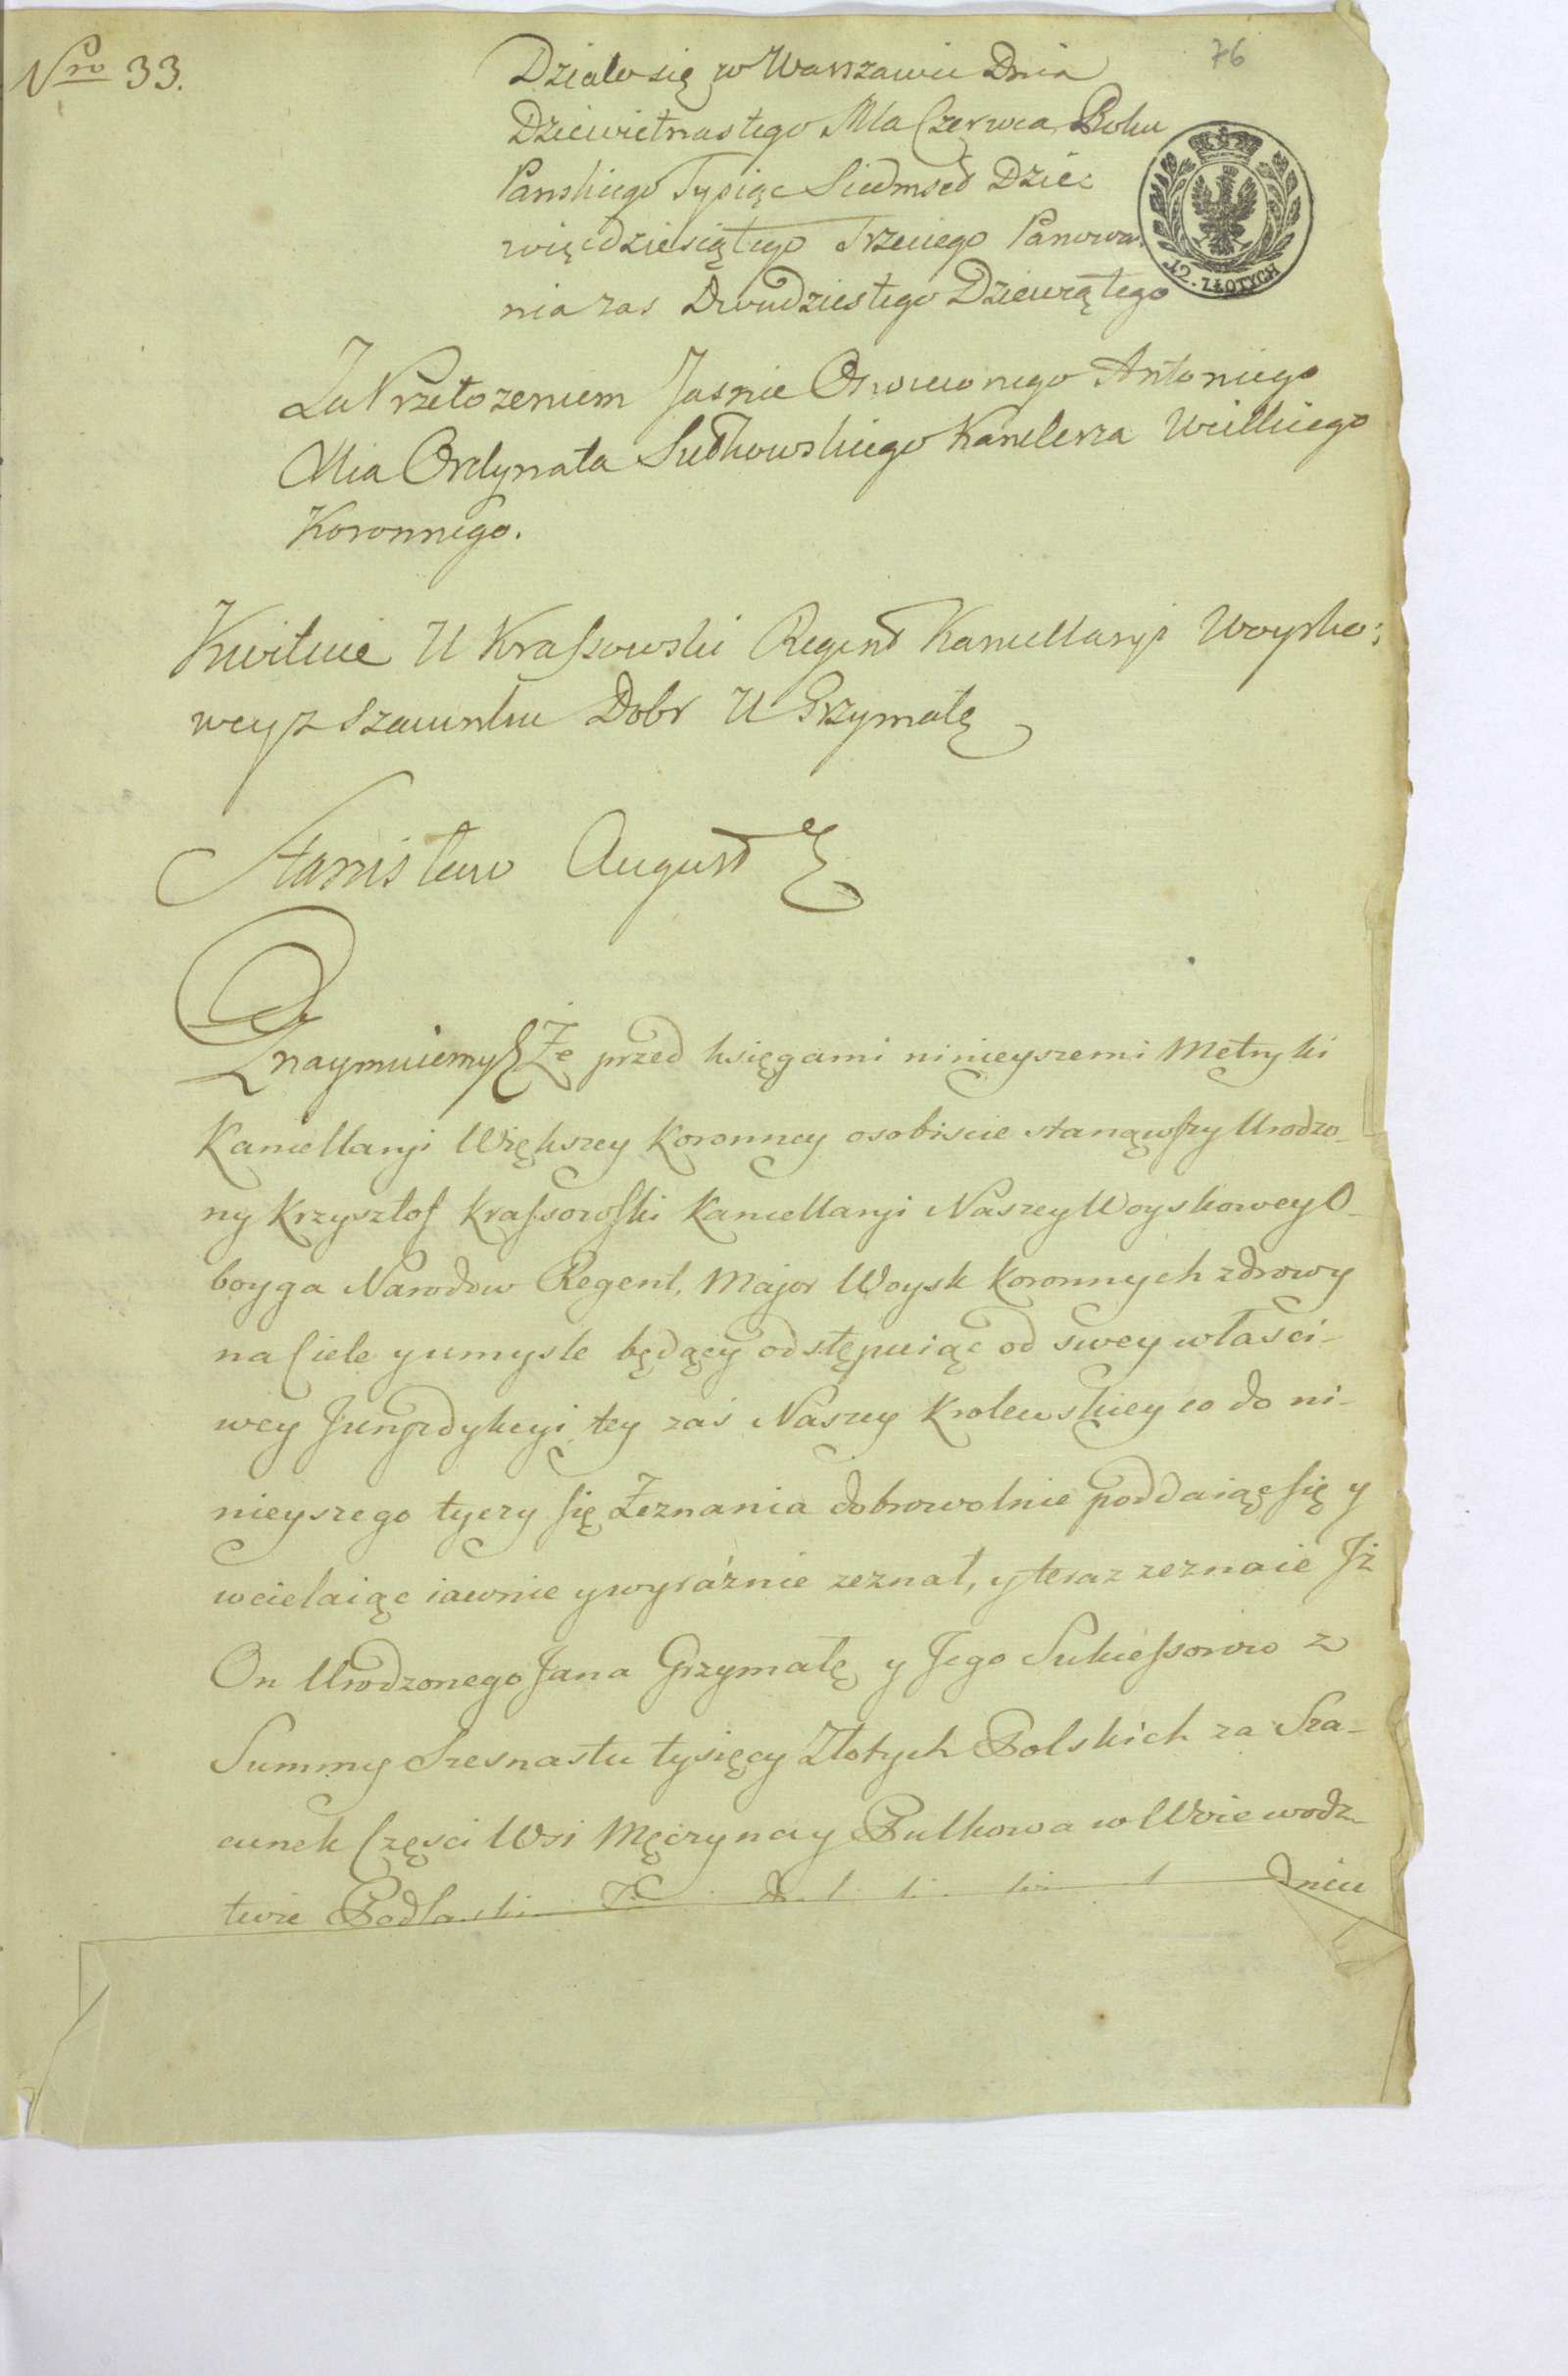 Nro 33.
76
Działo się w Warszawie Dnia
Dziewietnastego Mca Czerwca Roku
Panskiego Tysiąc Siedmset Dzie:
więcdziesiątego Trzeciego Panowa:
nia zas Dwudziestego Dziewiątego
12. ZŁOTYCH
Za Przełozeniem Jasnie Oswieconego Antoniego
Xcia Ordynata Sułkowskiego Kanclerza Wielkiego
Koronnego.
Kwituie U Krassowski Regent Kancellaryi Woysko:
wey z szacunku Dobr U Grzymałę
Stanisław August
Oznaymuiemy Że przed księgami ninieyszemi Metryki
Kancellaryi Większey Koronney osobiscie stanąwszy Urodzo-
ny Krzysztof Krassowski Kancellaryi Naszey Woyskowey O-
boyga Narodow Regent, Major Woysk Koronnych zdrowy
na Ciele y umysle będący odstępuiąc od swey własci-
wey Jurysdykcyi tey zaś Naszey Krolewskiey co do ni-
nieyszego tyczy się Zeznania dobrowolnie poddaiąc się y
wcielaiąc iawnie y wyraźnie zeznał, y teraz zeznaie Jż
On Urodzonego Jana Grzymałę y Jego Sukcessorow z
Summy Szesnastu tysięcy Złotych Polskich za Sza-
cunek Częsci Wsi Męczyna y Putkowa w Woiewodz-
twie dniu